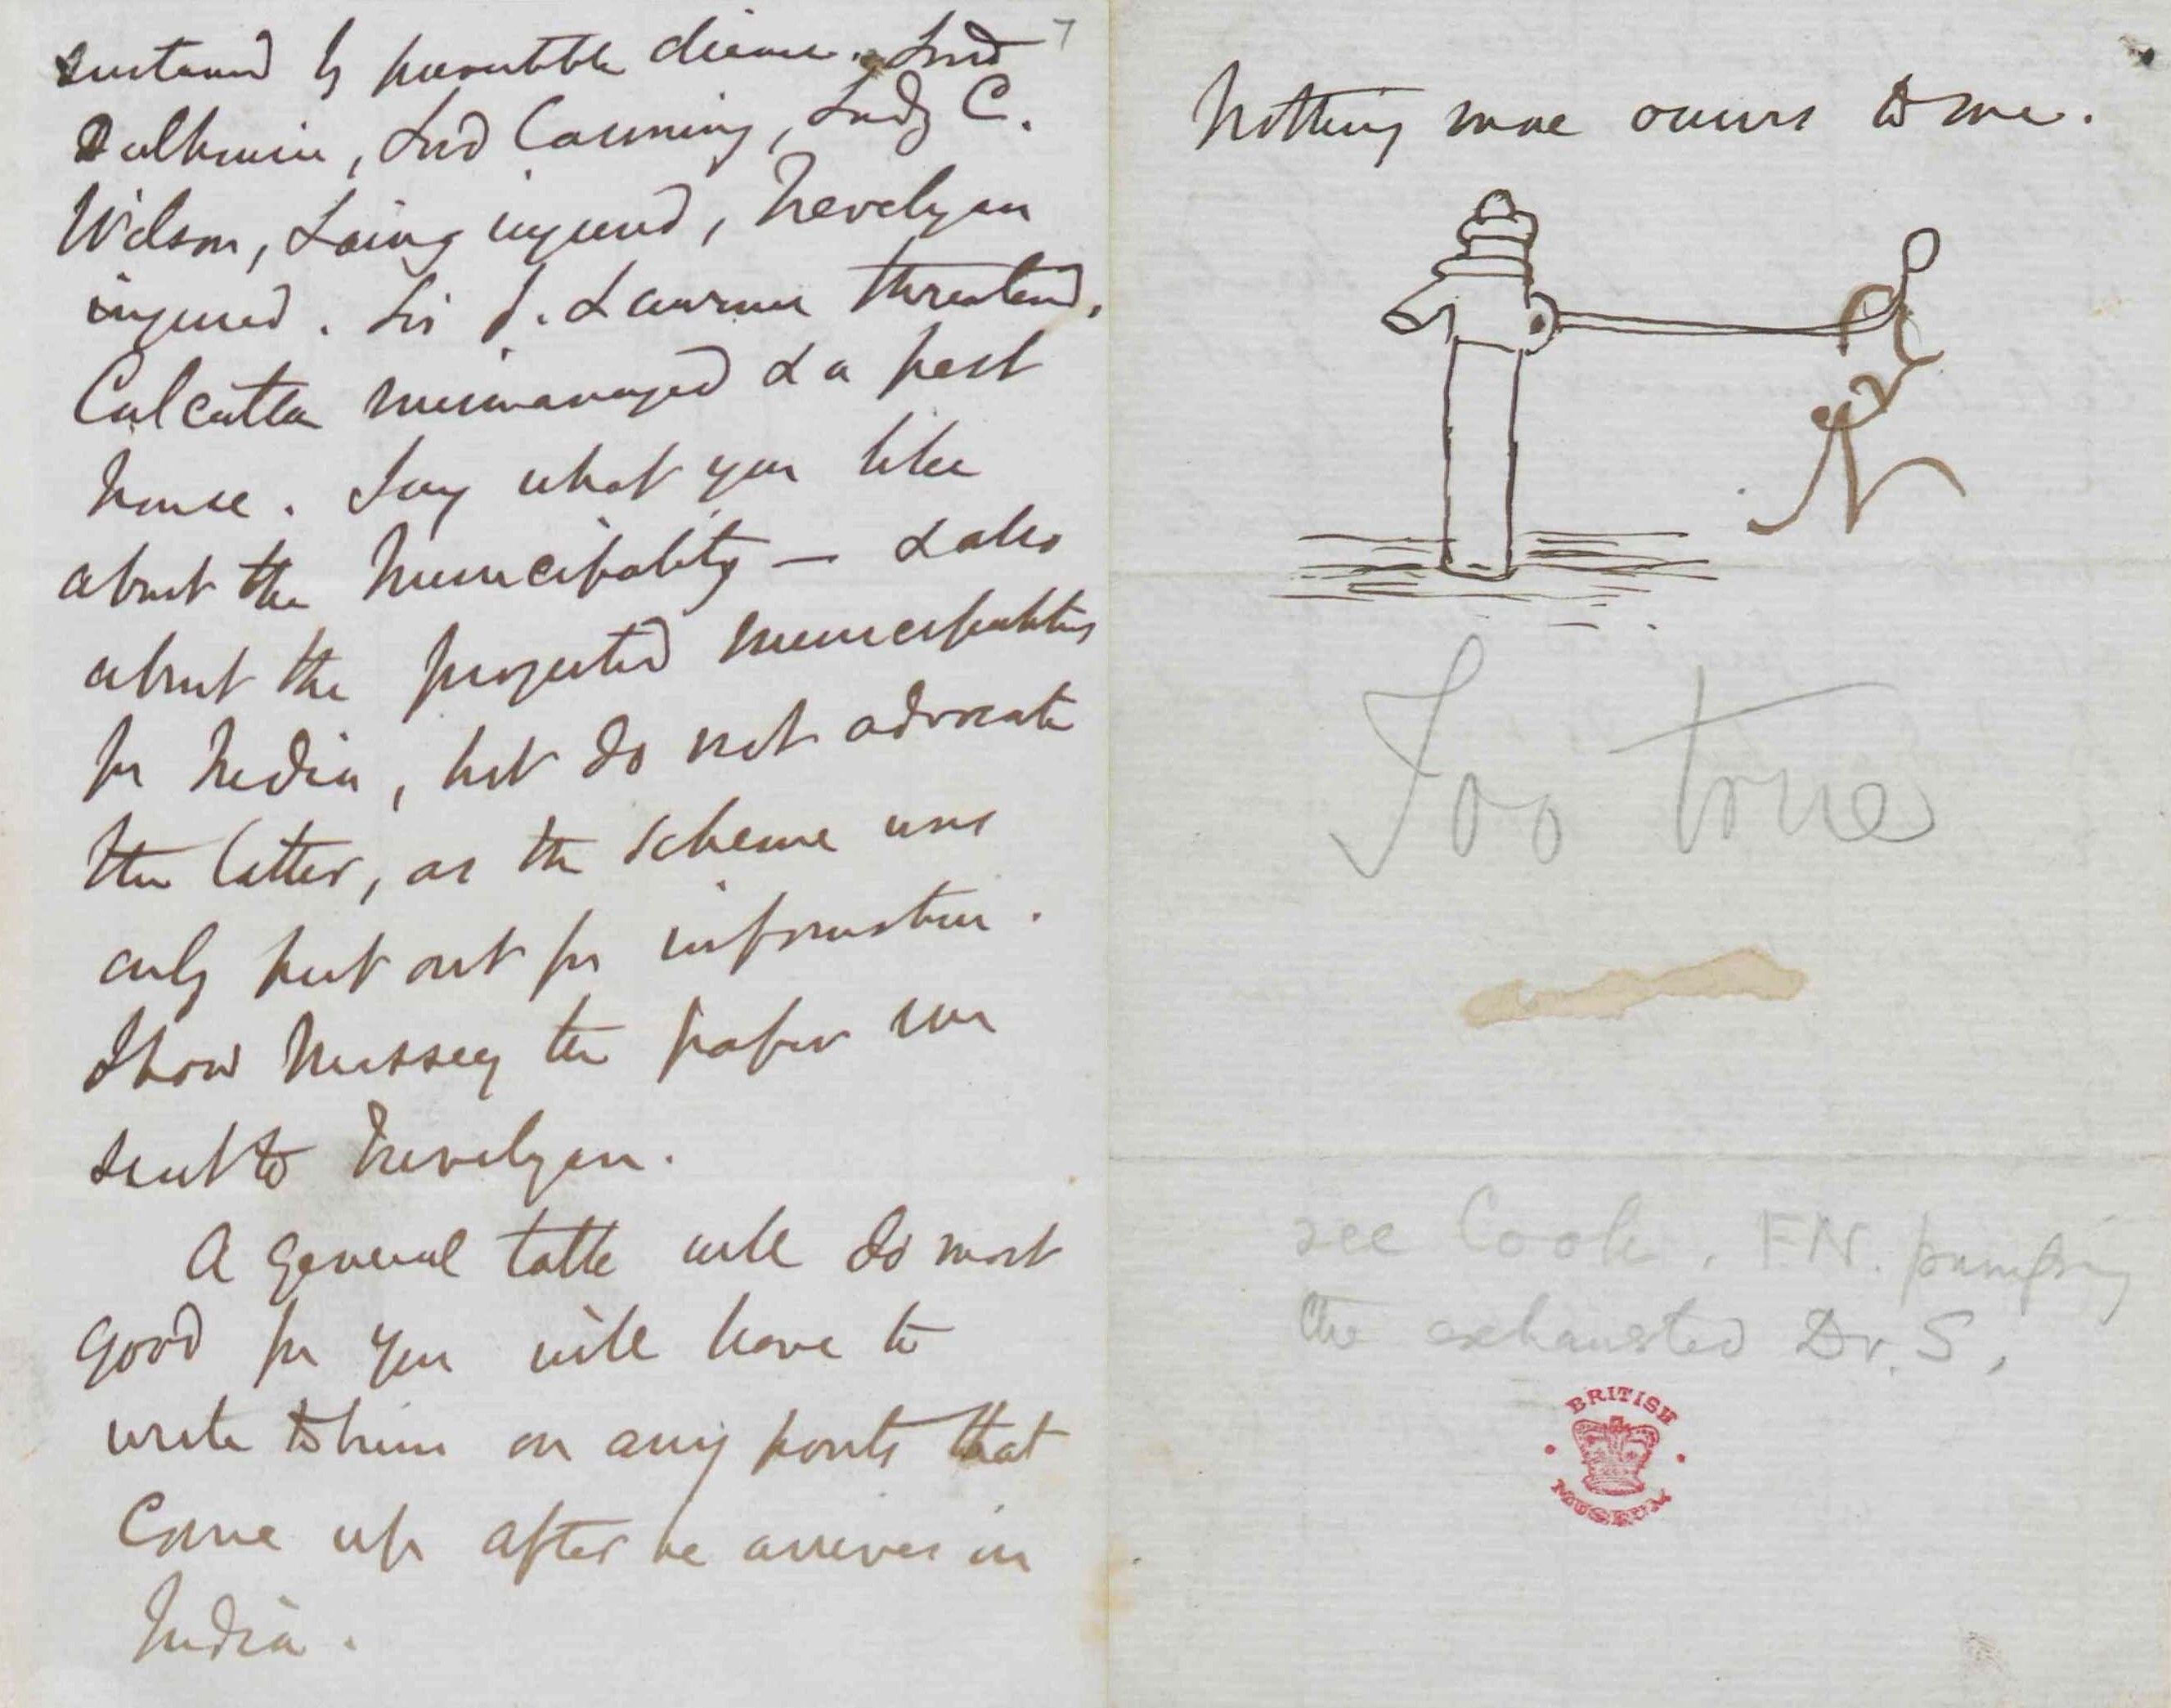 sustained by preventible disease. Lord
7
Dalhousie, Lord Canning, Lady C.
Wilson, Laing injured, Trevelyan
injured. Sir J. Lawrence threatened.
Calcutta mismanaged & a pest
house. Say what you like
about the Municipality — & also
about the projected Municipalities
for India, but do not advocate
the latter, as the scheme was
only put out for information.
Show Massey the paper we
sent to Trevelyan.
A general talk will do most
good for you will have to
write to him on any points that
come up after he arrives in
India.
Nothing more occurs to me.
Too true
see Cook. FN. pumping
the exhausted Dr. S.
BRITISH
MUSEUM